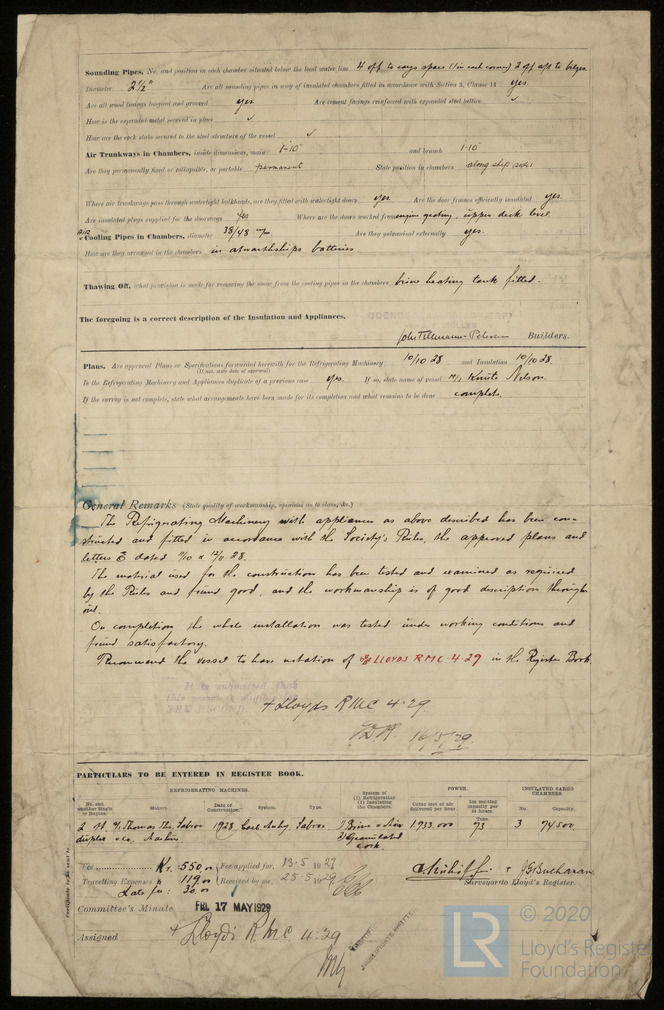 Sounding Pipes, No. and position in each chamber situated below the load water line 4 off to cargo space (1 in each corner) 2 off aft to bilges
Diameter 2½" Are all sounding pipes in way of insulated chambers fitted in accordance with Section 3, Clause 14 yes
Are all wood linings tongued and grooved yes Are cement facings reinforced with expanded steel lattice ✓
How is the expanded metal secured in place ✓
How are the cork slabs secured to the steel structure of the vessel ✓
Air Trunkways in Chambers, inside dimensions, main 1-10" and branch 1-10"
Are they permanently fixed or collapsible, or portable permanent State position in chambers along ship sides
Where air trunkways pass through watertight bulkheads, are they fitted with watertight doors yes Are the door frames efficiently insulated yes
Are insulated plugs supplied for the doorways yes Where are the doors worked from engine grating, upper deck level.
Cooling Pipes in Chambers, diameter 38/48 m/m Are they galvanised externally yes.
How are they arranged in the chambers in athwartships batteries
Thawing Off, what provision is made for removing the snow from the cooling pipes in the chambers brine heating tank fitted.
The foregoing is a correct description of the Insulation and Appliances.
Builders.
Plans. Are approved Plans or Specifications forwarded herewith for the Refrigerating Machinery 10/10 28 and Insulation 10/10 28.
(If not, state date of approval)
Is the Refrigerating Machinery and Appliances duplicate of a previous case Yes. If so, state name of vessel M/S Knute Nelson
If the survey is not complete, state what arrangements have been made for its completion and what remains to be done complete.
General Remarks (State quality of workmanship, opinions as to class, &c.)
The Refrigerating Machinery with appliances as above described has been con-
structed and fitted in accordance with the Society's Rules, the approved plans and
letters E dated
The material used for the construction has been tested and examined as required
by the Rules and found good, and the workmanship is of good description through-
out.
On completion the whole installation was tested under working conditions and
found satisfactory.
Recommend the vessel to have notation of LLOYDS RMC-4-29 in the Register Book.
It is submitted that
this
THE RECORD
+ Lloyds RMC 4.29
16/5/29
PARTICULARS TO BE ENTERED IN REGISTER BOOK.
REFRIGERATING MACHINES. System of (1) Refrigerating (2) Insulating the Chambers. POWER. INSULATED CARGO CHAMBERS.
No. and whether Single or Duplex. Makers. Date of Construction. System. Type. Cubic feet of air delivered per hour. Ice melting capacity per 24 hours Tons. No. Capacity.
2 Thomas Ths. Sabroe 1928 Carb. Anhy. Sabroe 1) Brine & Air 1.933.000 73 3 74,500
duplex 2) Granulated
cork
Fee Kr. 550.00 Fee applied for, 13-5 19
Travelling Expenses Kr. 119.00 Received by me, 25-5 1929
Late fee: 30.00
J G Buchanan
Surveyor to Lloyd's Register.
Committee's Minute FRI. 17 MAY 1929
Assigned + Lloyd's RMC 4.29
© 2020
LR
Lloyd's Register
Foundation